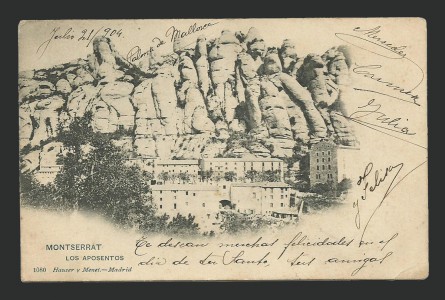 Julio 21/904.
Palma de Mallorca
Mercedes
Carmen
Julia
y Felisa
MONTSERRAT
LOS APOSENTOS
1080 Hauser y Menet.-Madrid
Te desean muchas felicidades en el
dia de tu Santo, tus amigas